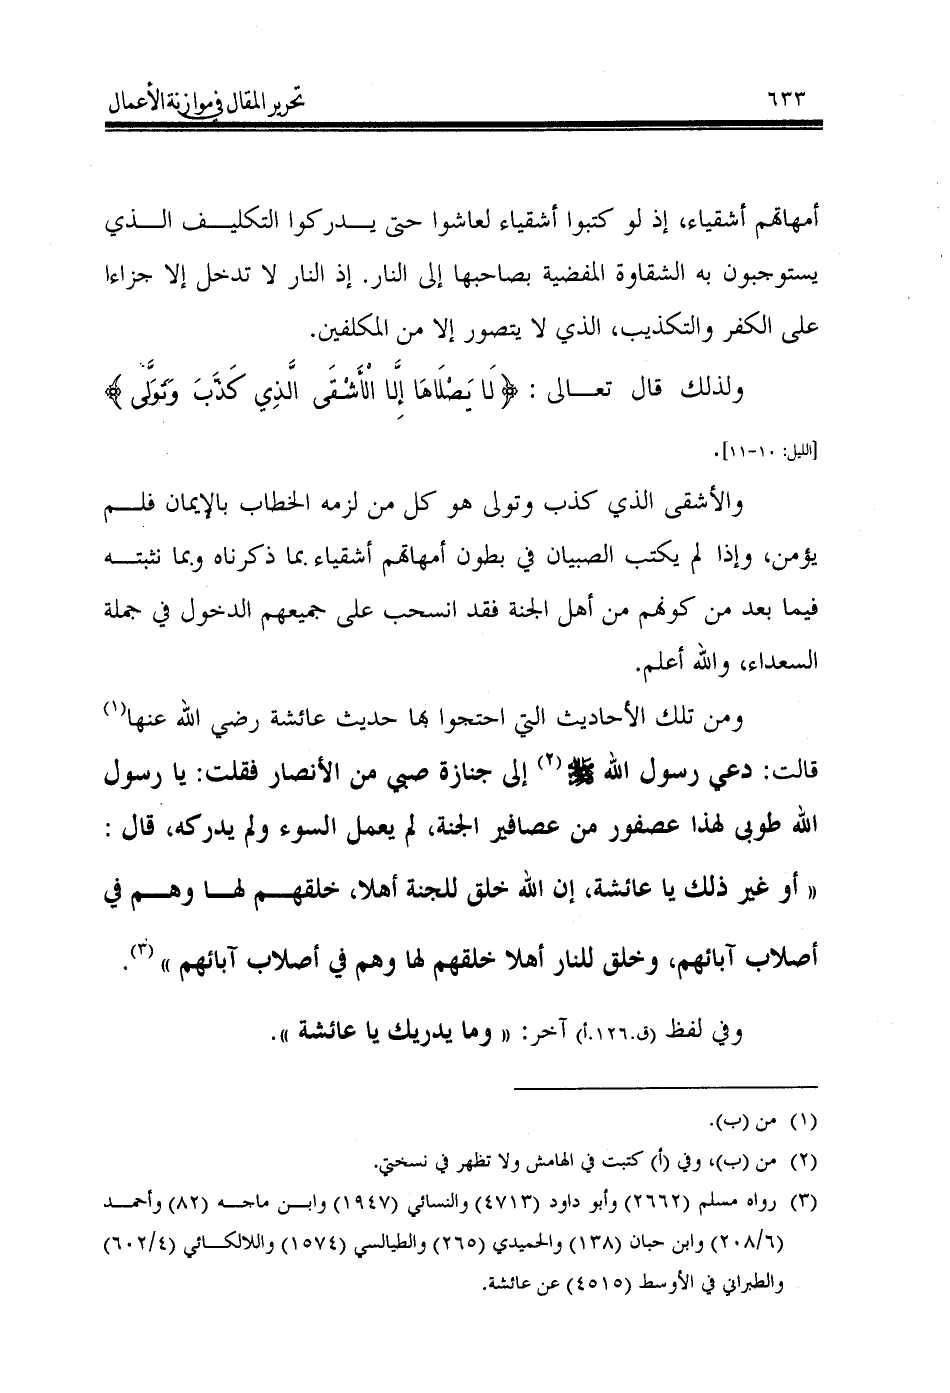 ٦٣٣
تحرير المقال في موازنة الأعمال
أمهاتهم أشقياء، إذ لو كتبوا أشقياء لعاشوا حتى يدركوا التكليف الذي
يستوجبون به الشقاوة المفضية بصاحبها إلى النار. إذ النار لا تدخل إلا جزاءا
على الكفر والتكذيب، الذي لا يتصور إلا من المكلفين.
ولذلك قال تعالى : ﴿ لَا يَصْلَاهَا إِلَّا الْأَشْقَى الَّذِي كَذَّبَ وَتَوَلَّى ﴾
[الليل: ١٠-١١].
والأشقى الذي كذب وتولى هو كل من لزمه الخطاب بالإيمان فلم
يؤمن، وإذا لم يكتب الصبيان في بطون أمهاتهم أشقياء بما ذكرناه وبما نثبته
فيما بعد من كونهم من أهل الجنة فقد انسحب على جميعهم الدخول في جملة
السعداء، والله أعلم.
ومن تلك الأحاديث التي احتجوا بها حديث عائشة رضي الله عنها(١)
قالت: دعي رسول الله ﷺ(٢) إلى جنازة صبي من الأنصار فقلت: يا رسول
الله طوبى لهذا عصفور من عصافير الجنة، لم يعمل السوء ولم يدركه، قال :
« أو غير ذلك يا عائشة، إن الله خلق للجنة أهلا، خلقهم لها وهم في
أصلاب آبائهم، وخلق للنار أهلا خلقهم لها وهم في أصلاب آبائهم »(٣).
وفي لفظ (ق.١٢٦.أ) آخر: « وما يدريك يا عائشة ».
(١) من (ب).
(٢) من (ب)، وفي (أ) كتبت في الهامش ولا تظهر في نسختي.
(٣) رواه مسلم (٢٦٦٢) وأبو داود (٤٧١٣) والنسائي (١٩٤٧) وابن ماجه (٨٢) وأحمد
(٢٠٨/٦) وابن حبان (١٣٨) والحميدي (٢٦٥) والطيالسي (١٥٧٤) واللالكائي (٦٠٢/٤)
والطبراني في الأوسط (٤٥١٥) عن عائشة.